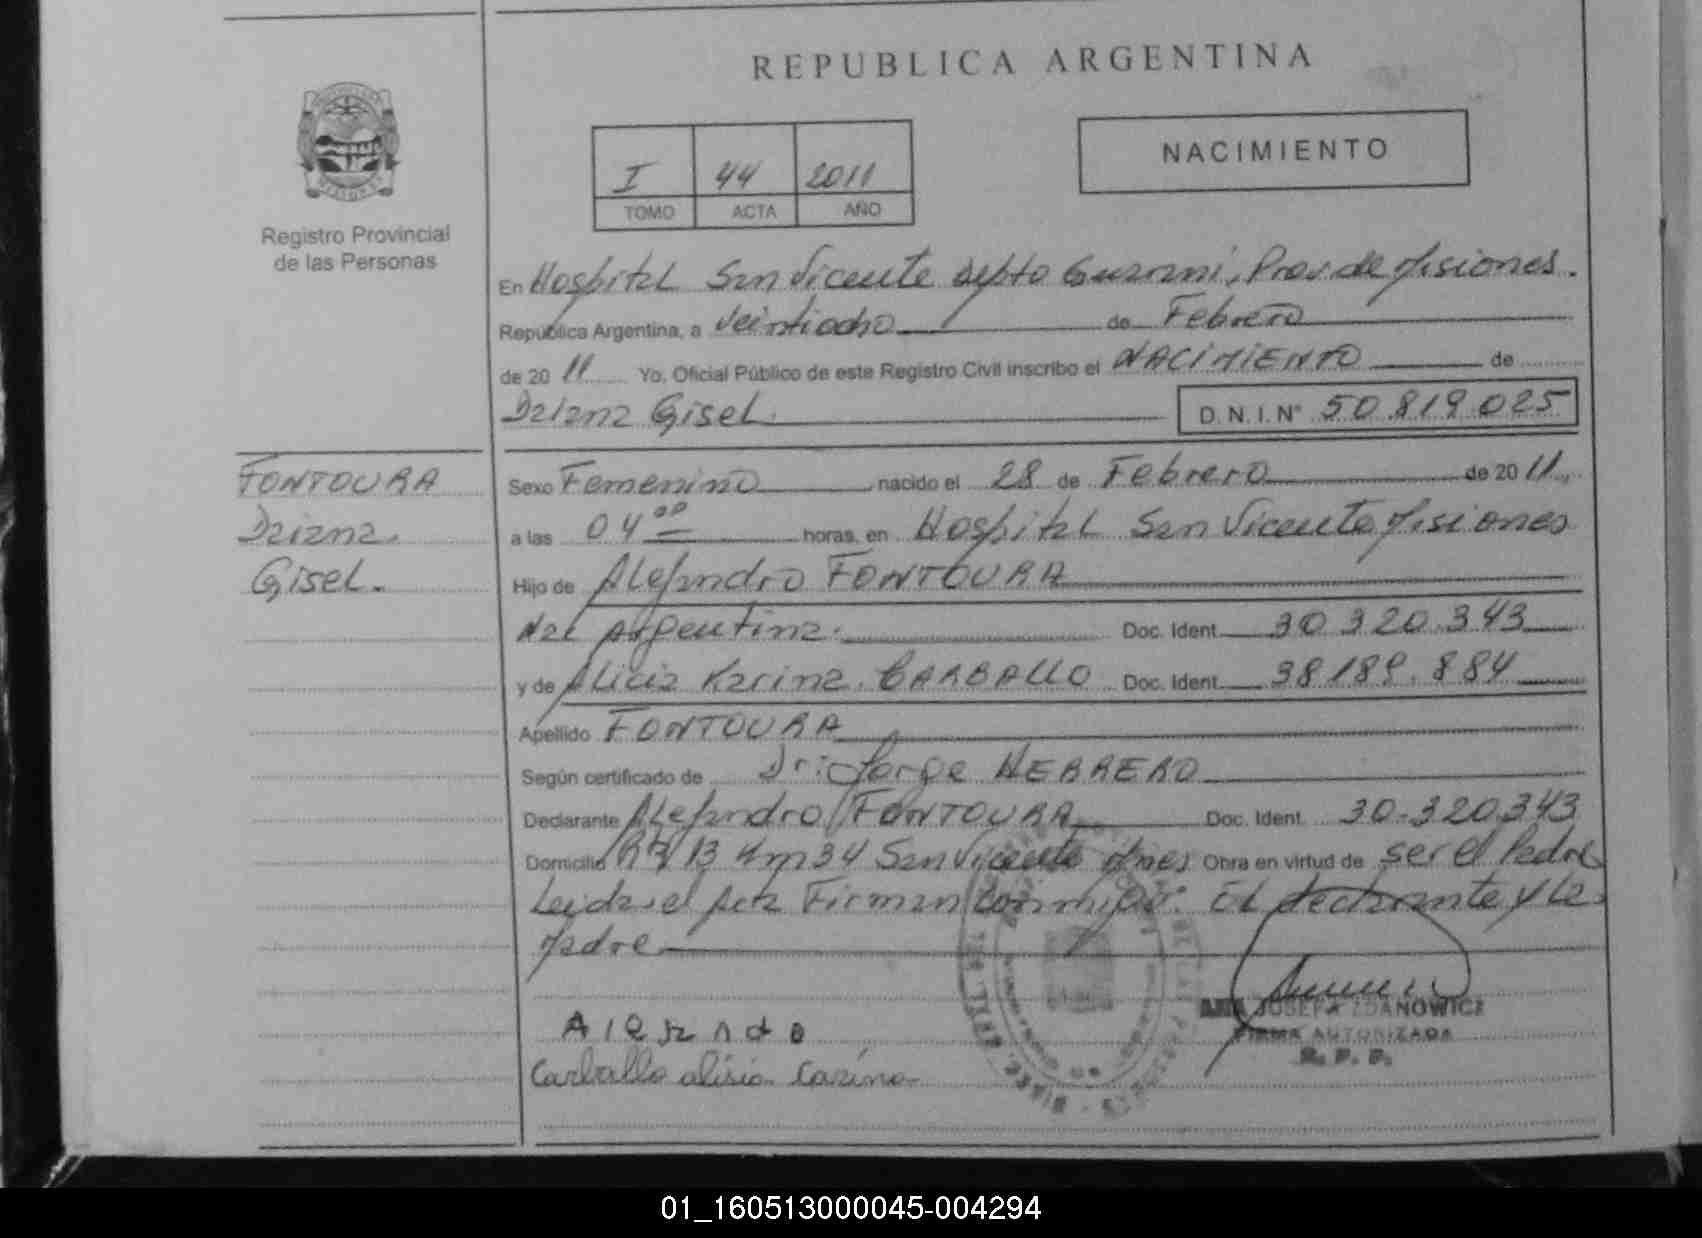 REPUBLICA ARGENTINA
NACIMIENTO
I 44 2011
TOMO ACTA AÑO
Registro Provincial
de las Personas
En Hospital San Vicente Depto Guarani, Prov. de Misiones.
República Argentina, a Veintiocho de Febrero
de 2011 Yo, Oficial Público de este Registro Civil inscribo el NACIMIENTO de
Daiana Gisel. D.N.I. N° 50.819.025
FONTOURA
Daiana.
Gisel.
Sexo Femenino nacido el 28 de Febrero de 2011,
a las 04 00 horas, en Hospital San Vicente Misiones
Hijo de Alejandro FONTOURA
Nac Argentina. Doc. Ident. 30.320.343
y de Alicia Karina CARBALLO Doc. Ident. 38.189.884
Apellido FONTOURA
Según certificado de Dr: Jorge HERRERO
Declarante Alejandro FONTOURA Doc. Ident. 30.320.343
Domicilio 13 Km 34 San Vicente Mnes Obra en virtud de ser el Padre
Leida el Acta Firman conmigo: El declarante y la
Madre
JOSEFA ZDANOWICZ
FIRMA AUTORIZADA
R. P. P.
Carballo alisia Carina
01_160513000045-004294